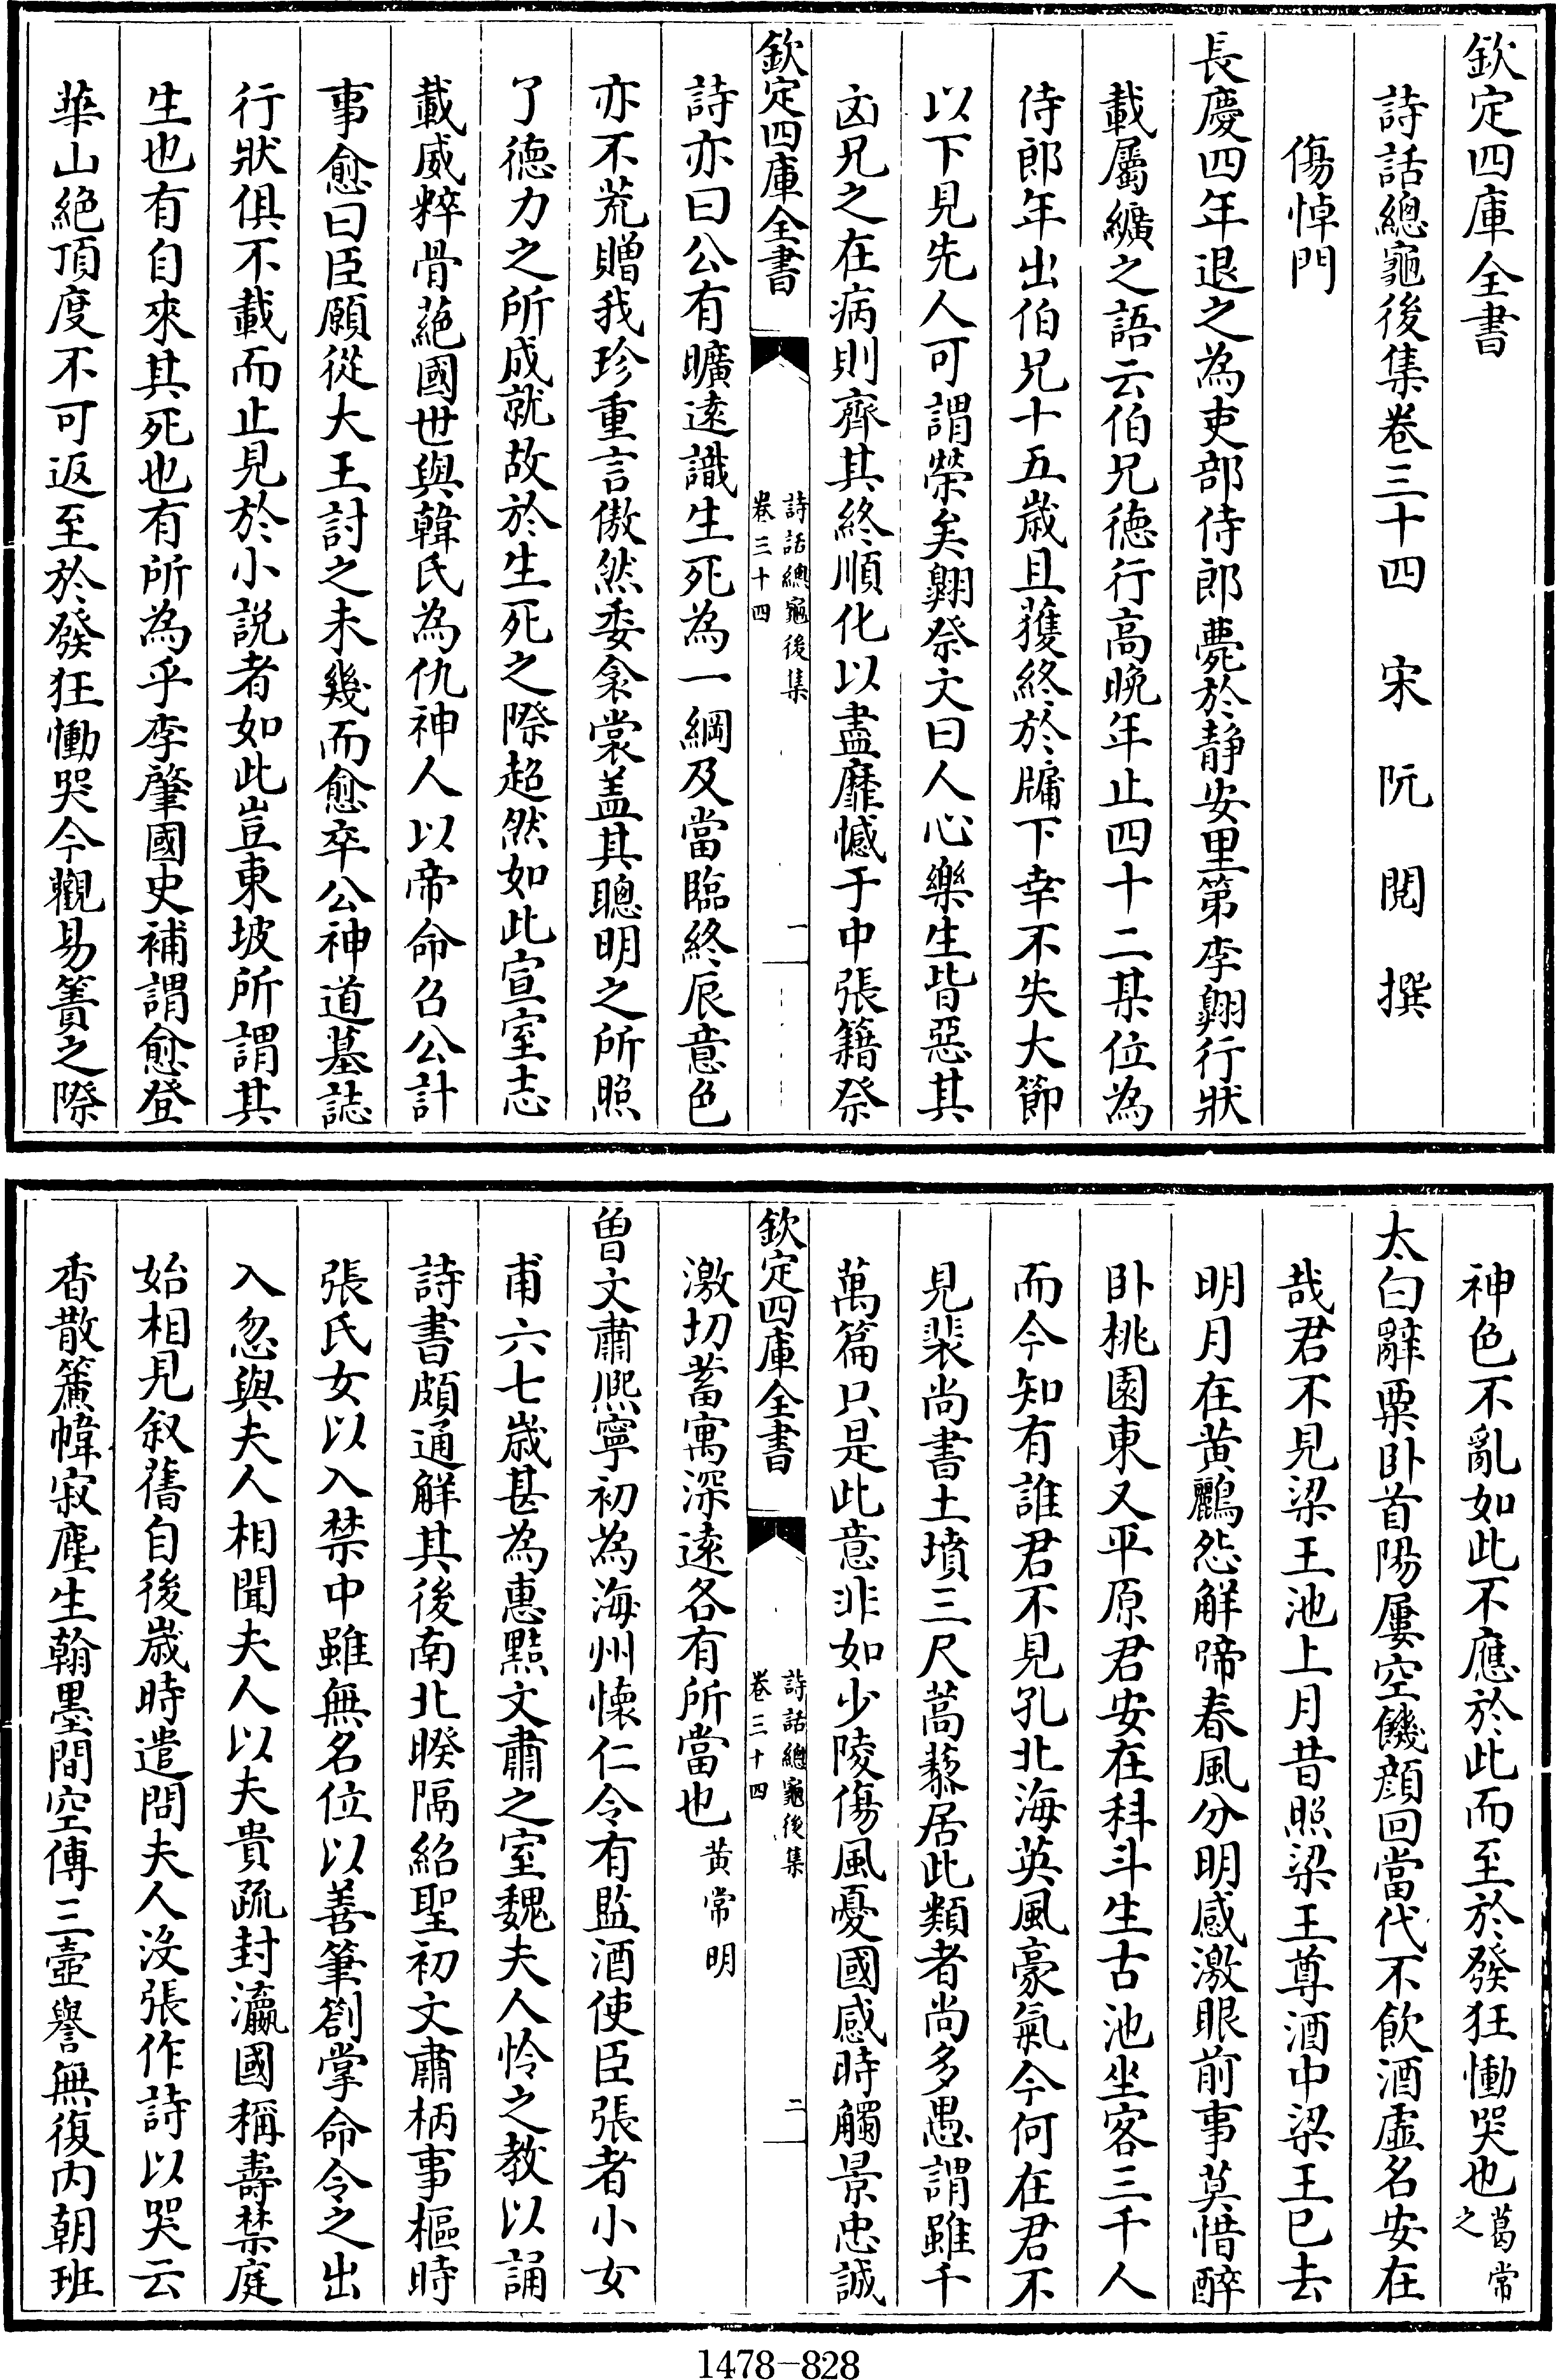 欽定四庫全書
詩話總龜後集卷三十四　宋　阮　閱　撰
傷悼門
長慶四年退之為吏部侍郎薨於靜安里第李翺行狀
載屬纊之語云伯兄德行高晚年止四十二某位為
侍郎年出伯兄十五歲且獲終於牖下幸不失大節
以下見先人可謂榮矣翺祭文曰人心樂生皆惡其
凶兄之在病則齊其終順化以盡靡憾于中張籍祭
欽定四庫全書
詩話總龜後集
卷三十四
一
詩亦曰公有曠逺識生死為一綱及當臨終辰意色
亦不荒贈我珍重言傲然委衾裳盖其聰明之所照
了德力之所成就故於生死之際超然如此宣室志
載威粹骨蕝國世與韓氏為仇神人以帝命召公計
事愈曰臣願從大王討之未幾而愈卒公神道墓誌
行狀俱不載而止見於小說者如此豈東坡所謂其
生也有自來其死也有所為乎李肇國史補謂愈登
華山絶頂度不可返至於發狂慟哭今觀易簀之際
神色不亂如此不應於此而至於發狂慟哭也葛常之
太白辭粟卧首陽屢空饑顔回當代不飲酒虛名安在
哉君不見梁王池上月昔照梁王尊酒中梁王已去
明月在黄鸝怨解啼春風分明感激眼前事莫惜醉
卧桃園東又平原君安在科斗生古池坐客三千人
而今知有誰君不見孔北海英風豪氣今何在君不
見裴尚書土墳三尺蒿藜居此類者尚多愚謂雖千
萬篇只是此意非如少陵傷風憂國感時觸景忠誠
欽定四庫全書
詩話總龜後集
卷三十四
二
激切蓄寓深逺各有所當也黄常明
曾文肅熙寧初為海州懷仁令有監酒使臣張者小女
甫六七歲甚為惠黠文肅之室魏夫人怜之教以誦
詩書頗通解其後南北暌隔紹聖初文肅柄事樞時
張氏女以入禁中雖無名位以善筆劄掌命令之出
入忽與夫人相聞夫人以夫貴疏封瀛國稱壽禁庭
始相見叙舊自後歲時遣問夫人沒張作詩以哭云
香散簾幃寂塵生翰墨間空傳三壺譽無復内朝班
1478-828